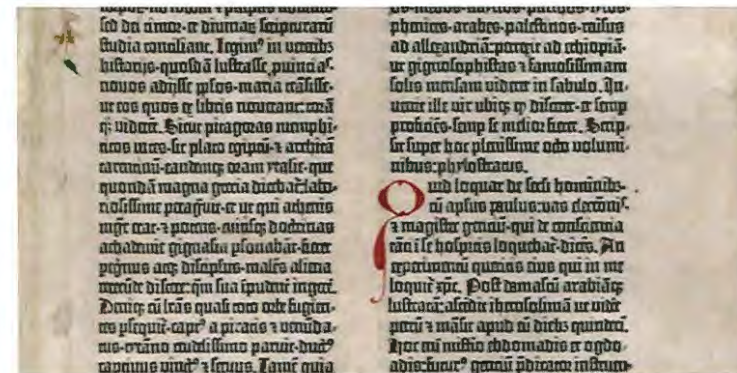 sed dei timor· et divinarū scripturarū
studia conciliant. Legimꝰ in veteribꝫ
historijs· quosdā lustrasse ꝓvincias·
novos adijsse pp̄los· maria trāsisse·
ut eos quos ex libris noverant: corā
qꝫ viderēt. Sicut pitagoras memphi-
ticos vates· sic plato egiptū· ⁊ architā
tarentinū· eandēqꝫ oram ytalie· que
quondā magna grecia dicebat̄: labo-
riosissime peragvit: et ut qui athenis
mgr̄ erat· ⁊ potens· cuiusqꝫ doctrinas
achademie gignasia ꝑsonabāt· fieret
pegrinus atqꝫ discipulus· malēs aliena
verecūde discere: qm̄ sua īpudent̄ ingere.
Deniqꝫ cū lr̄as quasi toto orbe fugien-
tes ꝑsequit̄· captꝰ a piratis ⁊ venūda-
tus· tirāno crudelissimo paruit· ductꝰ
captivus vīctꝰ ⁊ servus. Tamē quia
phenices· arabes· palestinos· revisus
ad allexandriā: perrexit ad ethiopiā·
ut gignosophistas ⁊ famosissimam
solis mensam videret in sabulo. In-
venit ille vir ubiqꝫ qd̄ disceret· et semp̄
proficiēs· semp̄ se melior fieret. Scrip-
sit super hoc plenissime octo volumi-
nibus: phylostratus.
Quid loquar de secli hominibꝫ·
cū apl̄us paulus: vas electōnis·
⁊ magister gentiū· qui de conscientia
tāti ī se hospitis loquebat̄· dicēs. An
experimentū queritis eius qui in me
loquit̄ xp̄c. Post damascū arabiāqꝫ
lustratā: ascēdit iherosolimā ut vidēt
petrū ⁊ māsit apud eū diebꝫ quindeci.
Hoc eni misterio ebdomadis et ogdo-
adis: futurꝰ gentiū p̄dicator instruen-